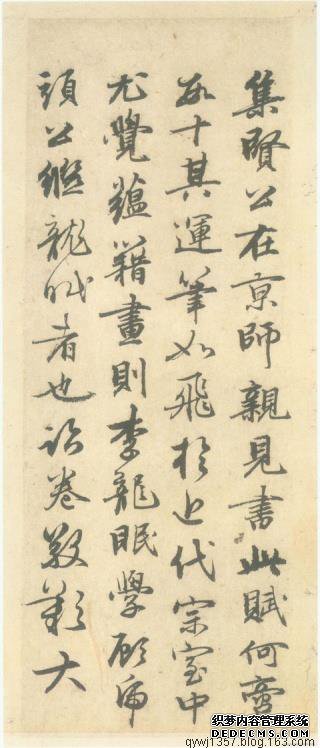 集賢公在京師親見書此賦何啻
數十其運筆如飛於近代宗室中
尤覺蘊籍畫則李龍眠學顧虎
頭公繼龍眠者也卷歎大
织梦内容管理系统
DEDECMS.COM
qywj1357.blog.163.com